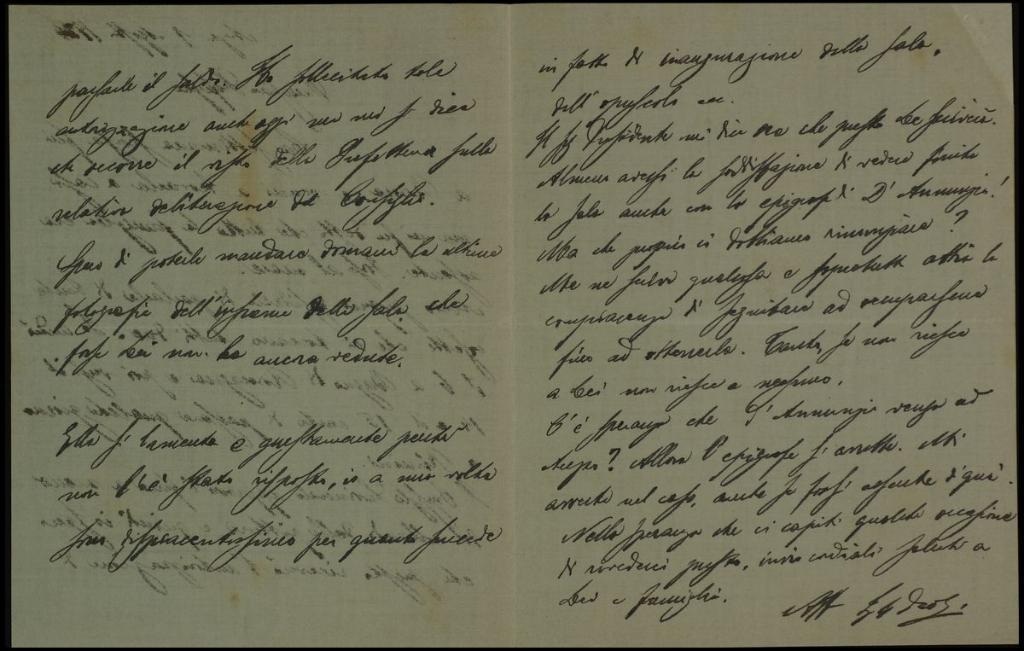 pagarle il saldo. Ho sollecitato tale
autorizzazione anche oggi ma mi si dice
che occorre il visto della Prefettura sulla
relativa deliberazione del Consiglio.
Spero di poterle mandare domani la ultima
fotografia dell'insieme della sala che
forse Lei non ha ancora veduta.
Ella si lamenta e giustamente perché
non l'è stato risposto, io a mia volta
sono dispiacentissimo per quanto succede
in fatto di inaugurazione della sala,
dell'opuscolo ecc.
Il Presidente mi dice ora che presto Le scriverà.
Almeno avessi la soddisfazione di vedere finita
la sala anche con la epigrafe di D'Annunzio!
Ma che proprio ci dobbiamo rinunziare?
Me ne scriva qualcosa e soprattutto abbia la
compiacenza di seguitare ad occuparsene
fino ad ottenerla. Tanto, se non riesce
a Lei non riesce a nessuno.
C'è speranza che D'Annunzio venga ad
Arezzo? Allora l'epigrafe si avrebbe. Mi
avverta nel caso, anche se fossi assente di qua.
Nella speranza che ci capiti qualche occasione
di rivederci presto, invio cordiali saluti a
Lei e famiglia.
Aff